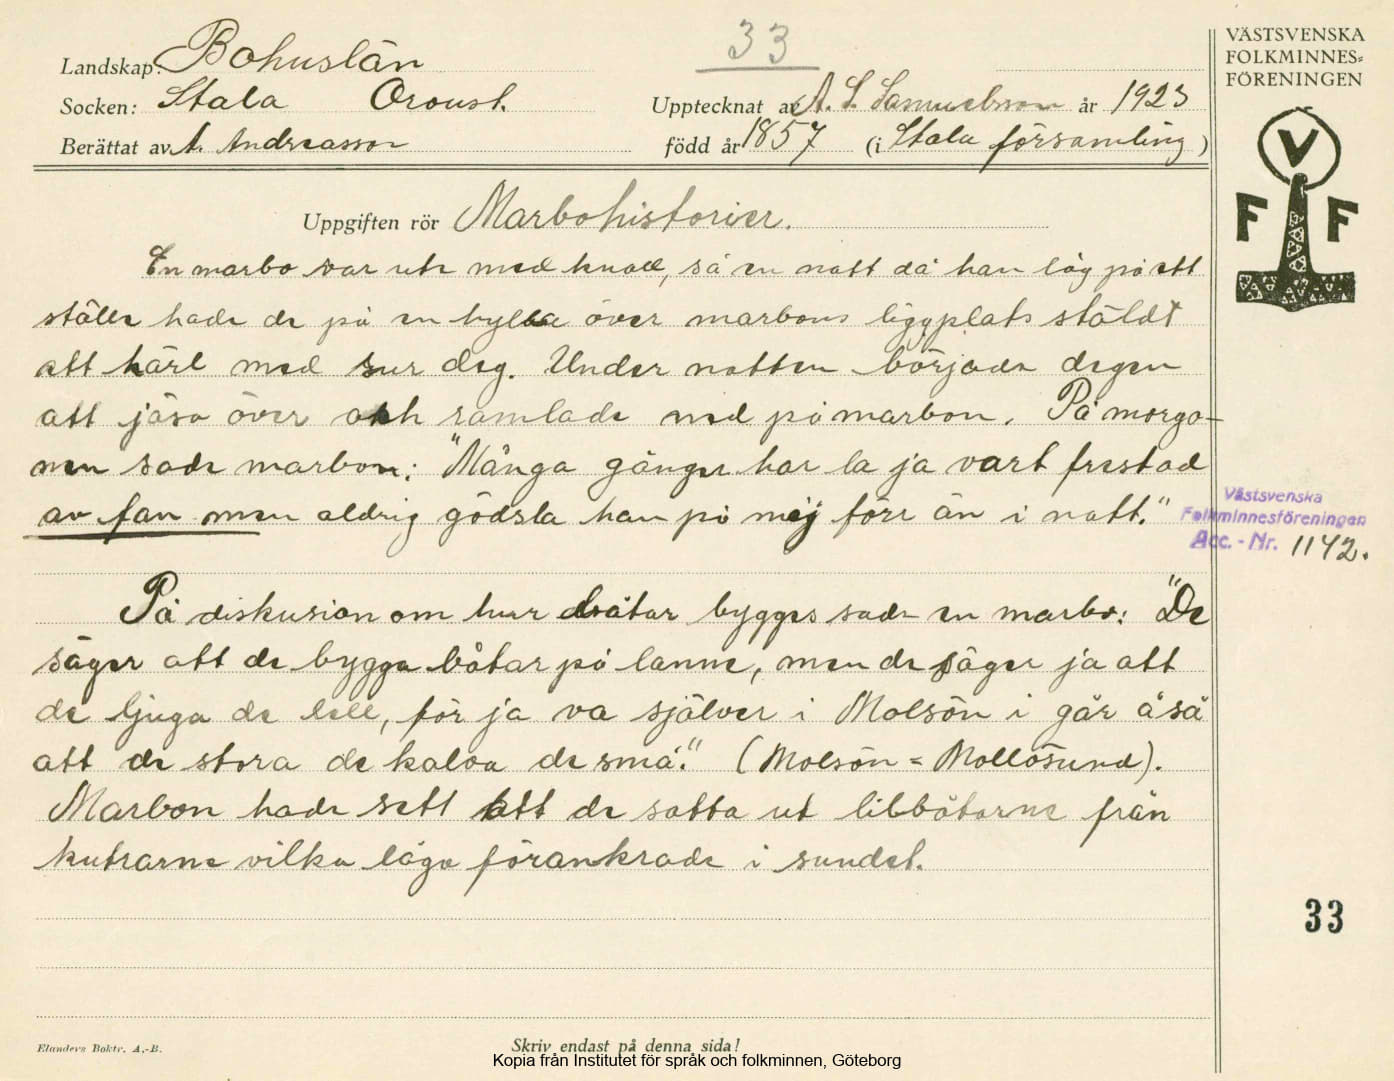 33
VÄSTSVENSKA
FOLKMINNES=
FÖRENINGEN
Landskap: Bohuslän
Socken: Stala Oroust.
Upptecknat av A. S. Samuelsson år 1923
Berättat av A. Andreasson
född år 1857 (i Stala församling)
V
F F
Uppgiften rör Marbohistorier.
En marbo var ute med knall, så en natt då han låg på ett
ställe hade de på en hylla över marbons liggplats stäldt
ett kärl med sur deg. Under natten började degen
att jäsa över och ramlade ned på marbon. På morgo-
nen sade marbon: "Många gånger har la ja vart frestad
av fan men aldrig gödsla han på mej förr än i natt."
Västsvenska
Folkminnesföreningen
Acc.-Nr. 1142.
På diskusion om hur båtar bygges sade en marbo: "De
säger att de bygga båtar på lanne, men de säger ja att
de ljuga de lell, för ja va själver i Molsön i går å så
att de stora de kalva de små." (Molsön = Mollösund).
Marbon hade sett att de satta ut lillbåtarne från
kutrarne vilka låga förankrade i sundet.
33
Elanders Boktr. A.-B.
Skriv endast på denna sida!
Kopia från Institutet för språk och folkminnen, Göteborg